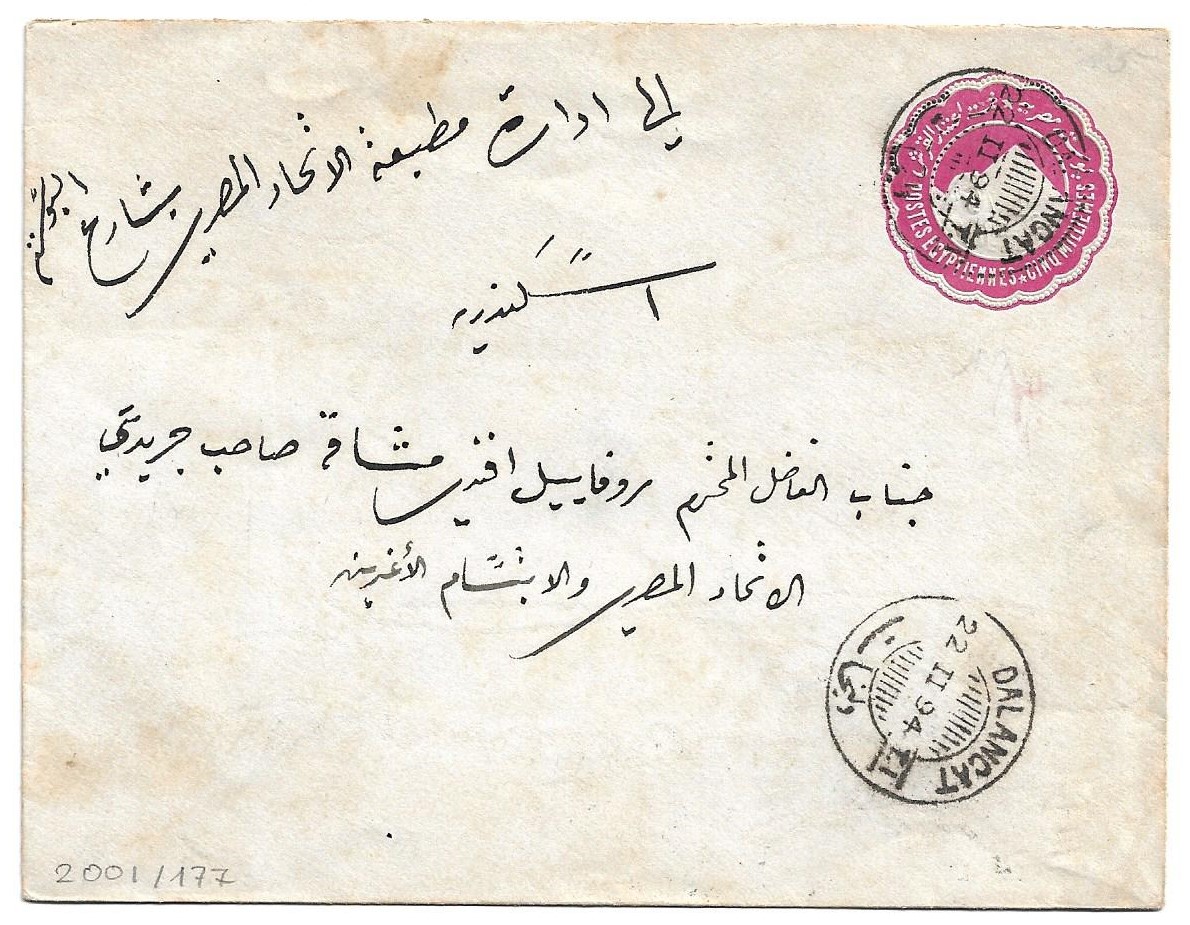 الى ادارة مطبعة الاتحاد المصري بشارع البوسته
اسكندريه
جناب الفاضل المحترم روفاييل افندي مشاقة صاحب جريدتي
الاتحاد المصري والابتسام الأغرين
POSTES EGYPTIENNES ★ CINQ MILLIEMES
22 II 94
DALANGAT
22 II 94
2001/177